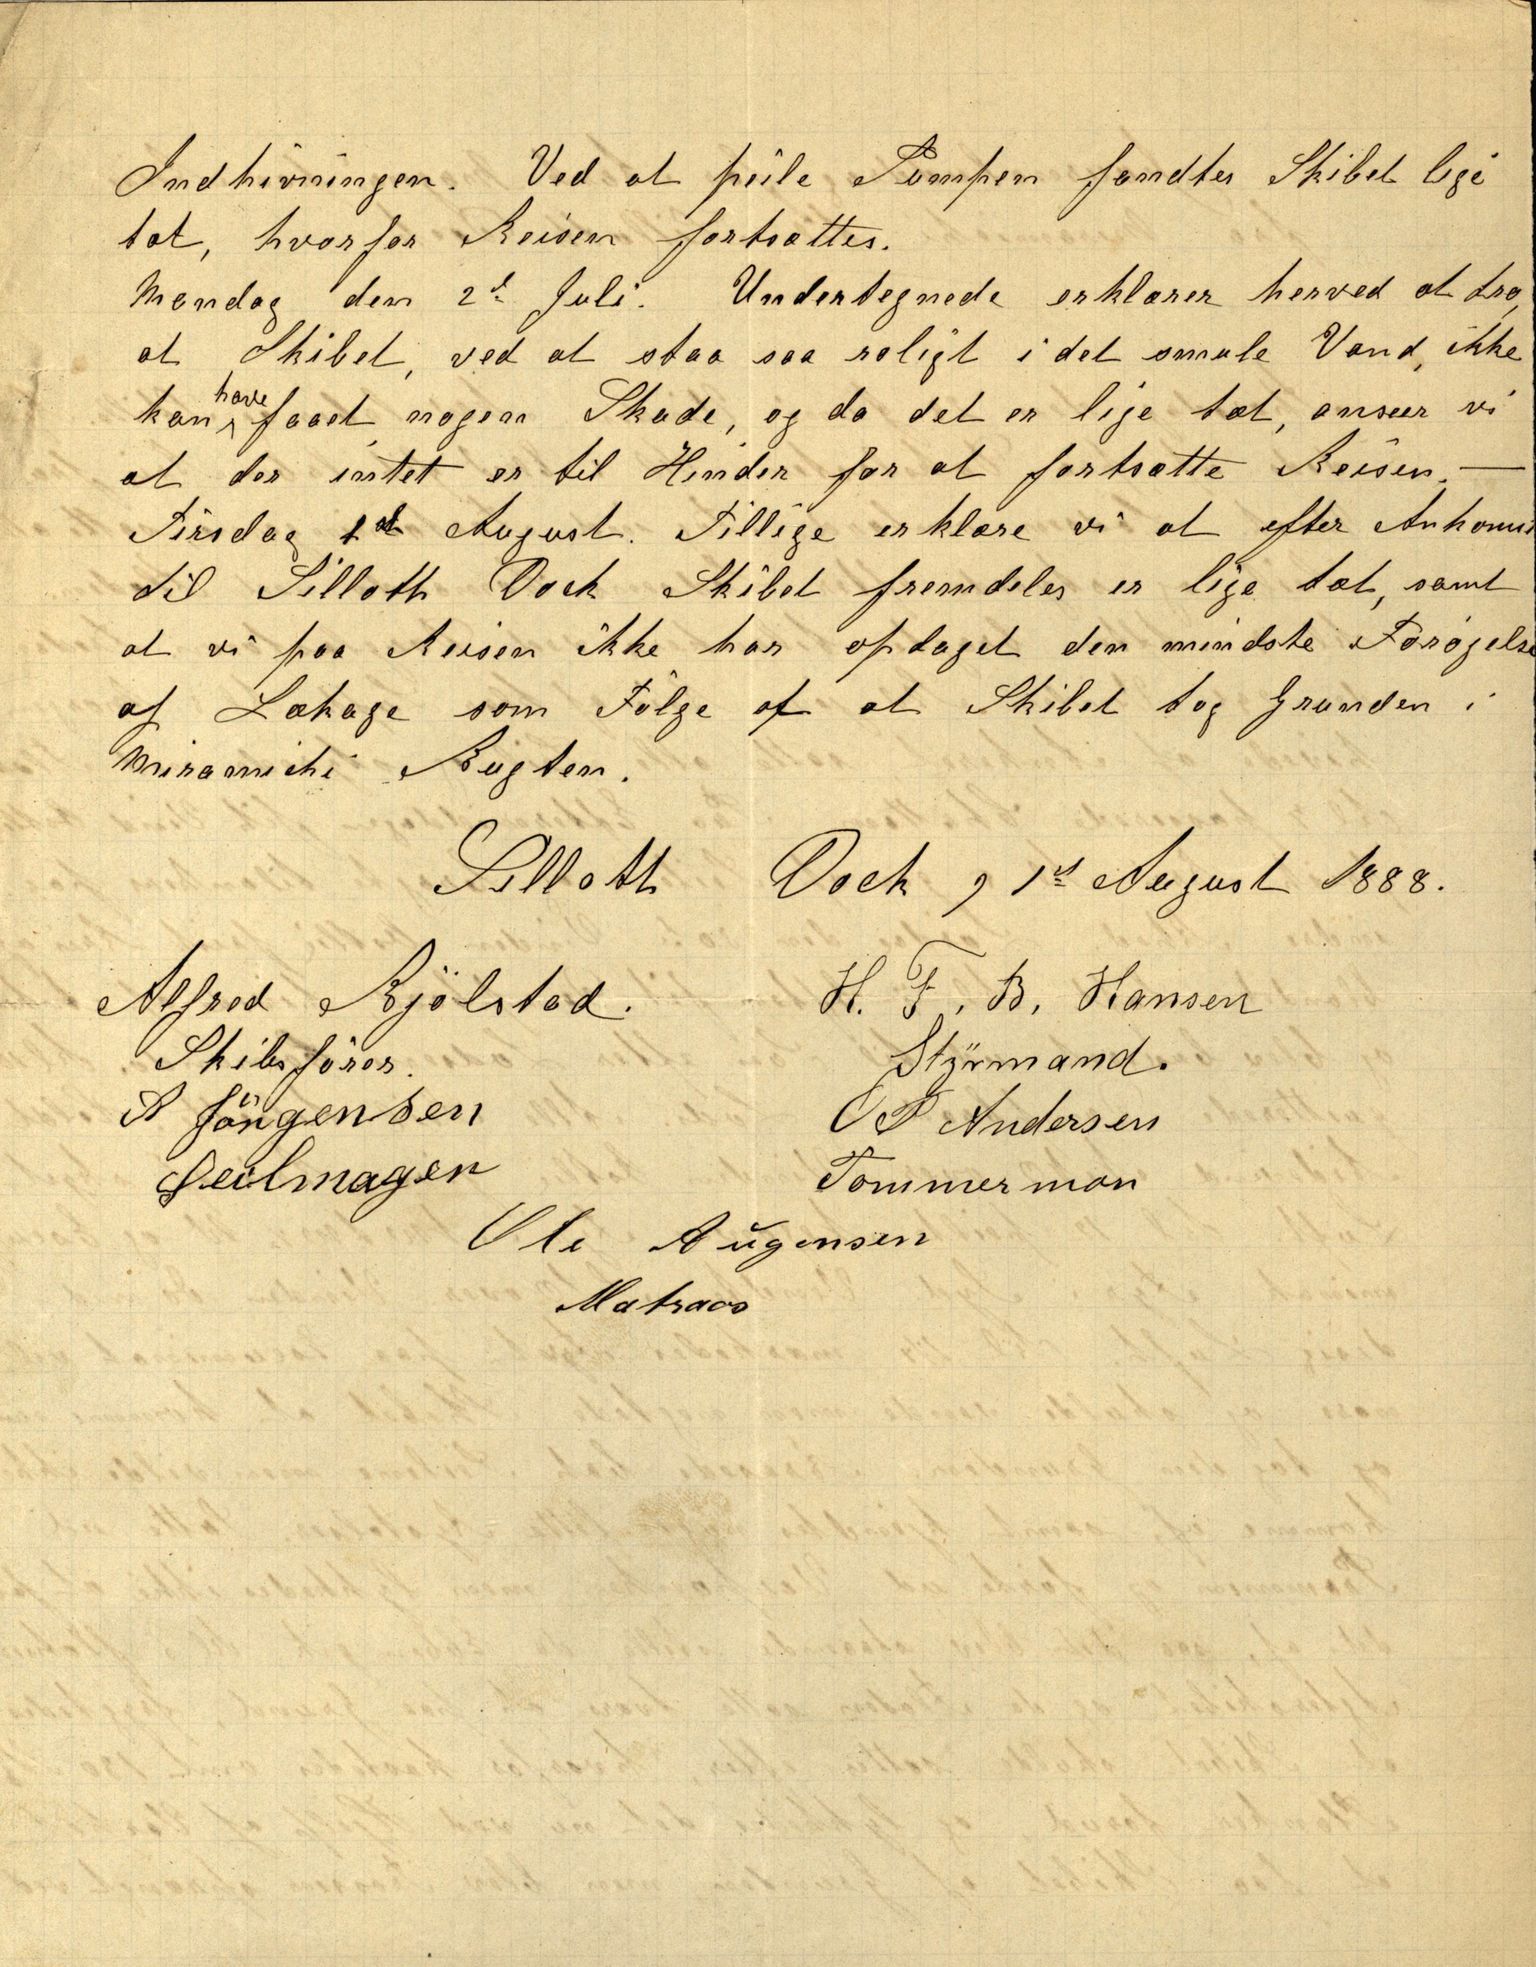 Indhivningen. Ved at peile Pumpen fandtes Skibet lige
tæt, hvorfor Reisen fortsattes.
Mandag den 2d Juli. Undertegnede erklærer herved at tro,
at Skibet, ved at staa saa roligt i det smule Vand, ikke
kan have faaet nogen Skade, og da det er lige tæt, anseer vi
at der intet er til Hinder for at fortsætte Reisen. —
Tirsdag 1st August. Tillige erklære vi at efter Ankomst
til Silloth Dock Skibet fremdeles er lige tæt, samt
at vi paa Reisen ikke har opdaget den mindste Forøgelse
af Lækage som Følge af at Skibet tog Grunden i
Miramichi Bugten.
Silloth Dock, 1st August 1888.
Alfred Kjölstad. H. F. B. Hansen
Skibsförer. Styrmand.
A Jörgensen O P Andersen
Seilmager Tømmerman
Ole Augensen
Matraos